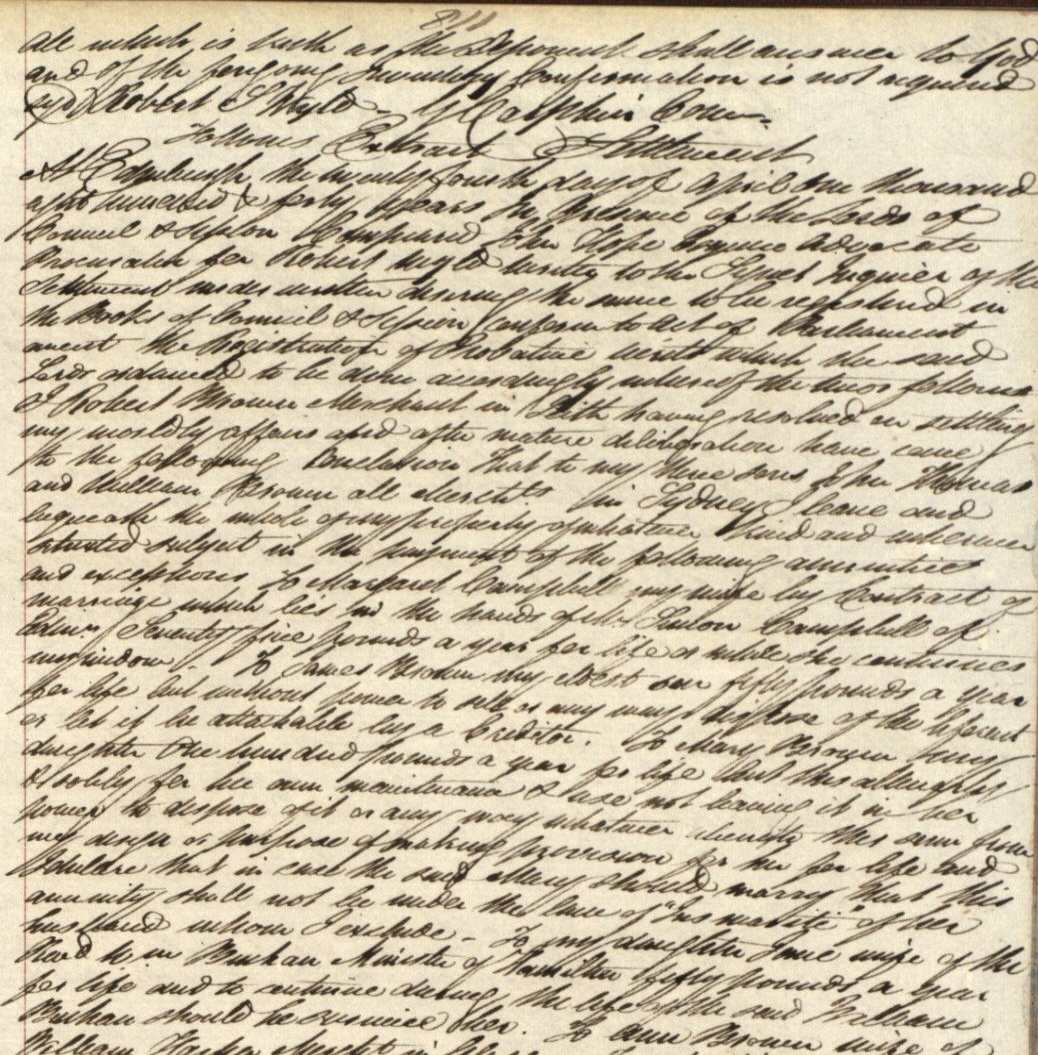 811
All which is truth as the Deponent shall answer to God
and of the foregoing Inventory Confirmation is not required
sgd Robert S Wyld - Calphin Com.
Follows Extract Settlement
At Edinburgh the twenty fourth day of April One thousand
eight hundred & forty years In Presence of the Lords of
Council & Session Compeared John Hope Esquire Advocate
Procurator for Robert Wyld writer to the Signet Inquier of the
Settlement under written desiring the same to be registered in
the Books of Council & Session Conform to Act of Parliament
anent the Registration of Probative writs which the said
Lords ordained to be done accordingly whereof the tenor follows
I Robert Brown Merchant in Leith having resolved on settling
my worldly affairs and after mature deliberation have come
to the following Conclusion That to my three sons John Thomas
and William Brown all Merchts in Sydney I leave and
bequeath the whole of my property of whatever kind and wherever
situated subject in the payment of the following annuities
and exceptions To Margaret Campbell my wife by Contract of
marriage which lies in the hands of Mr Campbell of
Edinr. Seventy five pounds a year for life or while she continues
my widow. To James Brown my eldest son fifty pounds a year
for life but without power to sell or any way dispose of the liferent
or let it be attachable by a Creditor. To Mary Brown my
daughter One hundred pounds a year for life but this allenarly
& solely for her own maintenance & use not leaving it in her
power to dispose of it or any way whatever this sum from
my design or purpose of making provision for her for life and
Declare that in case the said Mary should marry that this
annuity shall not be under the law of "Jus mariti" of her
husband whom I exclude - To my daughter wife of the
Revd Wm Buchan Minister of Hamilton fifty pounds a year
for life and to continue during the life of the said William
Buchan should he survive her. To Ann Brown wife of
William Mercht in